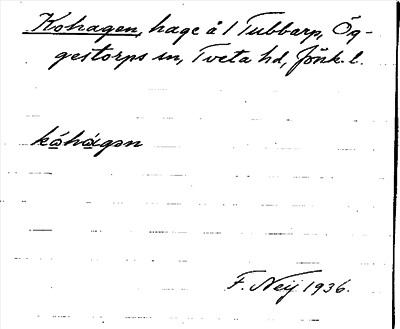 Kohagen, hage å 1 Tubbarp, Ög-
gestorps sn, Tveta hd, Jönk. l.
kóhàgən
F. Neij 1936.